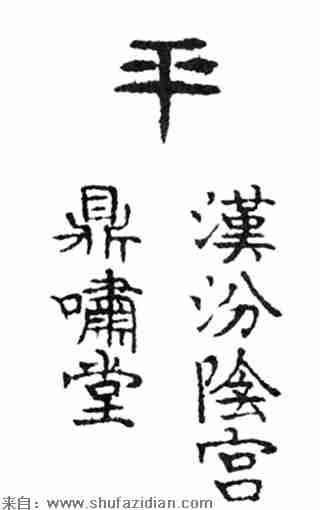 平
漢汾陰宫
鼎嘯堂
来自：www.shufazidian.com